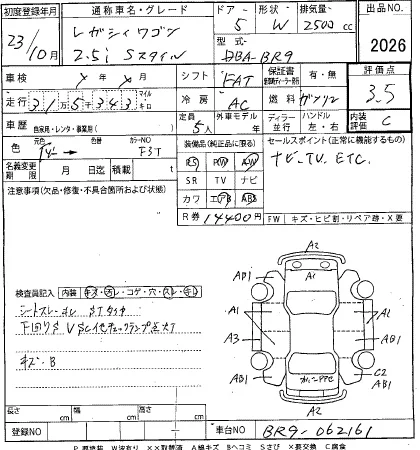 初度登録年月 通称車名・グレード ドア 形状 排気量 出品NO.
23/10月 レガシィワゴン 5 W 2500cc 2026
2.5i Sスタイル 型式 DBA-BR9
車検 シフト FAT 保証書 有・無 評価点 3.5
走行 31万5千343 マイル キロ 冷房 AC 燃料 ガソリン 内装評価 C
車歴 自家用・レンタ・事業用( ) 定員 5人 外車モデル ディーラー 並行 ハンドル 左・右
色 色替 カラーNO F3T 装備品(純正に限る) セールスポイント(正常に機能する物)
PS PW AW ナビ、TV、ETC、
名義変更期限 月 日迄 積載 t SR TV ナビ
注意事項(欠品・修復・不具合箇所および状態) カワ エアB ABS
R券 14400円 FW キズ・ヒビ割・リペア跡・X要
検査員記入 内装 キズ・ヨゴレ・コゲ・穴・スレ・
シートスレ・ヨゴレ STスレ
下回りS VSC他チェックランプ点灯
キズ・B
A2
AB1 A1 AB1
A1 A1
A3 AB1
AB1 C2
AB1
A2
長さ cm 幅 cm 高さ cm
登録NO 車台NO BR9-062161
P要塗装 W波有り XX取替済 A線キズ Bヘコミ Sさび X要交換 C腐食